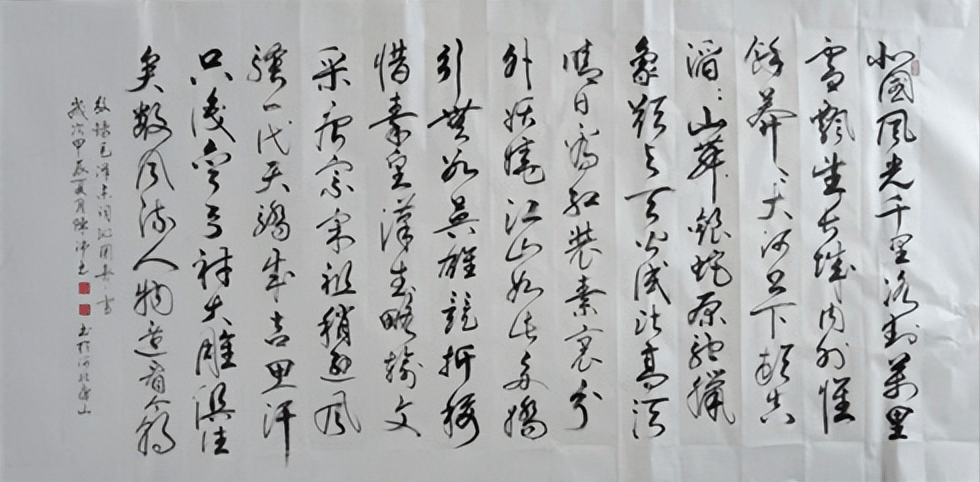 北國风光千里冰封萬里
雪飄望長城内外惟
餘莽々大河上下頓失
滔々山舞銀蛇原馳臘
象欲與天公試比高須
晴日看紅裝素裹分
外妖嬈江山如此多嬌
引無數英雄競折腰
惜秦皇漢武略輸文
采唐宗宋祖稍遜风
騷一代天驕成吉思汗
只識彎弓射大雕俱往
矣數风流人物還看今朝
敬錄毛澤東詞沁園春雪
歲次甲辰夏月陳 書於河北唐山